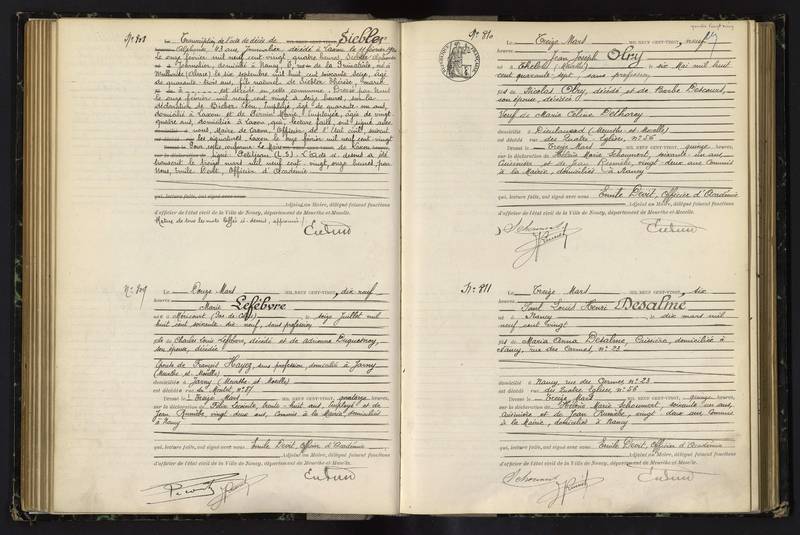 N° 808
Le Transcription de l'acte de décès de Siebler
Alphonse, 43 ans, Journalier, décédé à Laxou le 11 février 1920
Le onze février mil neuf cent vingt, quatre heures, Siebler Alphonse
Journalier, domicilié à Nancy, rue de la Primatiale, né à
Mulhouse (Alsace) le six septembre mil huit cent soixante seize, âgé
de quarante trois ans, fils naturel de Siebler Thérèse,
est décédé en cette commune. Dressé par Nous
le onze février mil neuf cent vingt à seize heures, sur la
déclaration de Léon, employé, âgé de quarante un ans,
domicilié à Laxou et de Marie, employée, âgée de vingt
quatre ans, domiciliée à Laxou qui, lecture faite, ont signé avec
nous, Maire de Laxou, Officier de l'État civil, suivent
les signatures. Laxou le onze février mil neuf cent vingt
Pour copie conforme Le Maire de Laxou
signé: Petitjean (L.S.) L'acte ci dessus a été
transcrit le treize mars mil neuf cent vingt, onze heures, par
Nous, Emile Devit, Officier d'Académie
qui, lecture faite, ont signé avec nous
Adjoint au Maire, délégué faisant fonctions
d'officier de l'état civil de la Ville de Nancy, département de Meurthe-et-Moselle.
Rature de tous les mots biffés ci-dessus, approuvée /
N° 809
Le Douze Mars MIL NEUF CENT VINGT, dix neuf
heures
Marie Lefébvre
née à Méricourt (Pas de Calais), le seize Juillet mil
huit cent soixante dix neuf, sans profession
fille de Charles Louis Lefébvre, décédé et de Adrienne Duquesnoy,
son épouse, décédée
Epouse de François Hayez, sans profession, domicilié à Jarny
(Meurthe et Moselle)
domiciliée à Jarny (Meurthe et Moselle)
est décédée rue du Montet, n° 87
Dressé le Treize Mars, quatorze heures,
sur la déclaration de trente huit ans, employé et de
Jean vingt deux ans, Commis à la Mairie, domiciliés
à Nancy
qui, lecture faite, ont signé avec nous Emile Devit, Officier d'Académie
Adjoint au Maire, délégué faisant fonctions
d'officier de l'état civil de la Ville de Nancy, département de Meurthe-et-Moselle.
N° 810
Le Treize Mars MIL NEUF CENT VINGT, neuf
heures
Jean Joseph Olry
né à, le six Mai mil huit
cent quarante sept, sans profession
fils de Nicolas Olry, décédé et de Barbe
son épouse, décédée
Veuf de Marie Céline Delhorey
domicilié à Dieulouard (Meurthe et Moselle)
est décédé rue des Quatre Eglises, n° 56
Dressé le Treize Mars, quinze heures,
sur la déclaration de Hélène Marie soixante un ans,
Cuisinière et de Jean vingt deux ans, Commis
à la Mairie, domiciliés à Nancy
qui, lecture faite, ont signé avec nous Emile Devit, Officier d'Académie
Adjoint au Maire, délégué faisant fonctions
d'officier de l'état civil de la Ville de Nancy, département de Meurthe-et-Moselle.
N° 811
Le Treize Mars MIL NEUF CENT VINGT, six
heures
Paul Louis Henri Desalme
né à Nancy, le dix mars mil
neuf cent vingt
fils de Maria Anna Desalme, domiciliée à
Nancy, rue des Carmes, n° 23
domicilié à Nancy rue des Carmes n° 23
est décédé rue des Quatre Eglises n° 56
Dressé le Treize Mars, quinze heures,
sur la déclaration de Hélène Marie soixante un ans,
Cuisinière et de Jean vingt deux ans Commis
à la Mairie, domiciliés à Nancy
qui, lecture faite, ont signé avec nous Emile Devit, Officier d'Académie
Adjoint au Maire, délégué faisant fonctions
d'officier de l'état civil de la Ville de Nancy, département de Meurthe-et-Moselle.